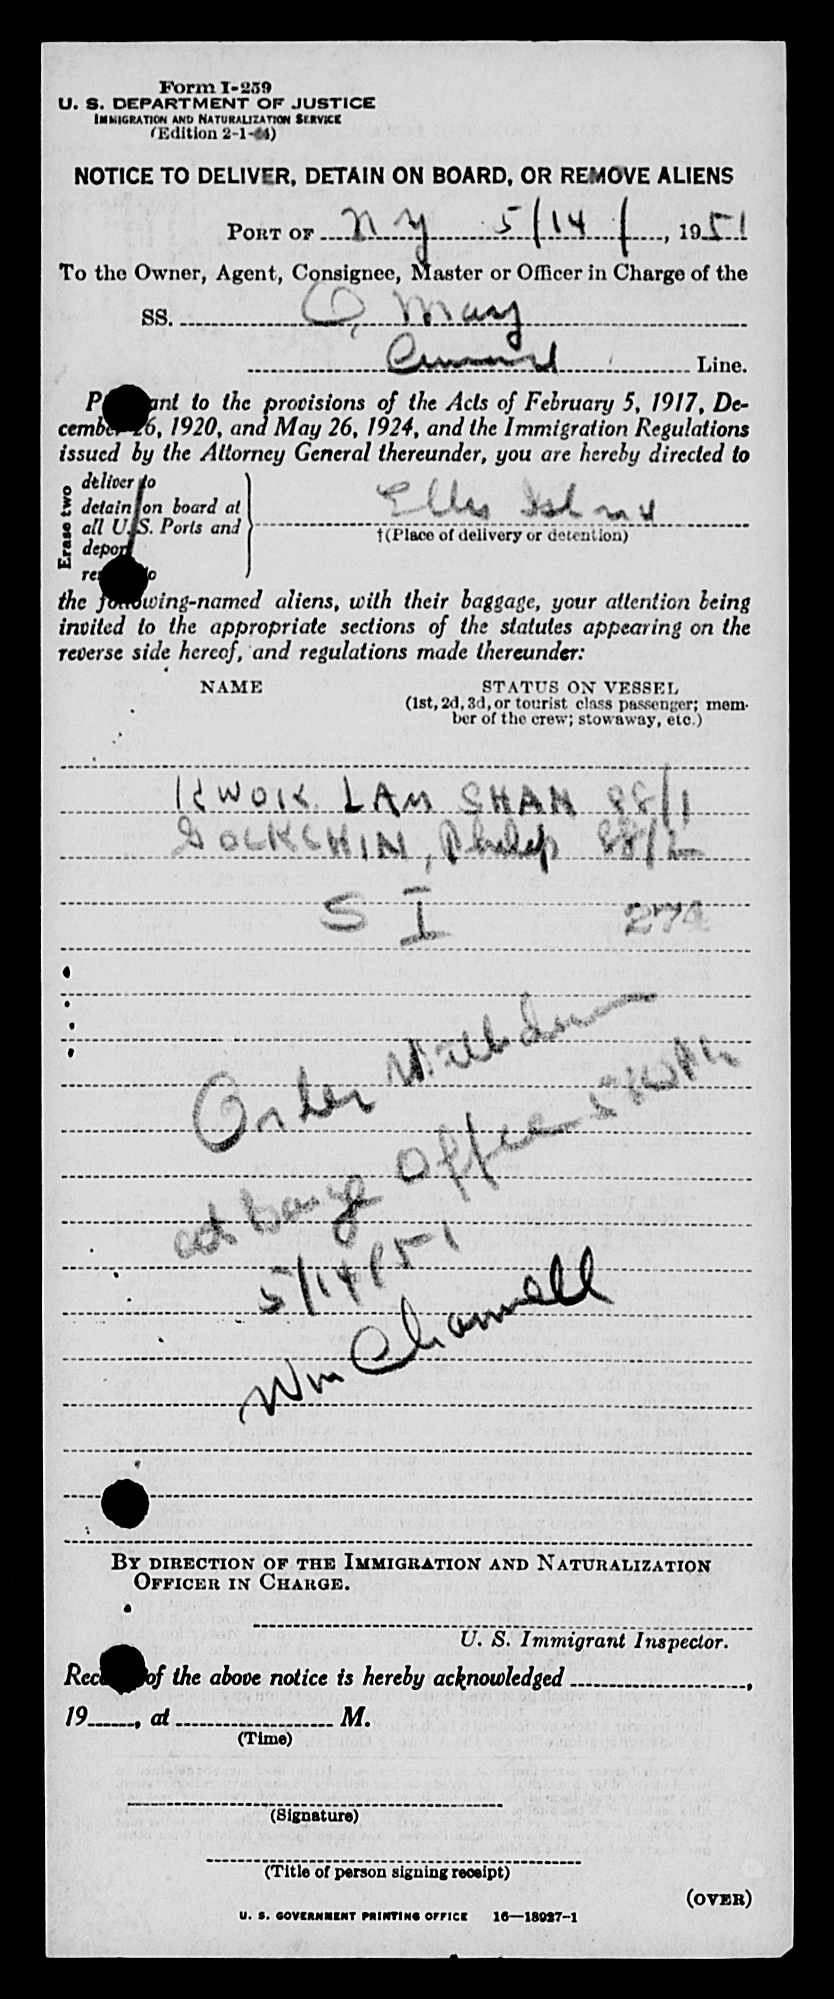 Form I-259
U. S. DEPARTMENT OF JUSTICE
IMMIGRATION AND NATURALIZATION SERVICE
(Edition 2-1-44)
NOTICE TO DELIVER, DETAIN ON BOARD, OR REMOVE ALIENS
PORT OF N Y 5/14/, 1951
To the Owner, Agent, Consignee, Master or Officer in Charge of the
SS. Q. Mary
Cunard Line.
P ant to the provisions of the Acts of February 5, 1917, De-
cember 26, 1920, and May 26, 1924, and the Immigration Regulations
issued by the Attorney General thereunder, you are hereby directed to
Erase two
deliver to
detain on board at
all U.S. Ports and
depor
re o
Ellis Island
†(Place of delivery or detention)
the following-named aliens, with their baggage, your attention being
invited to the appropriate sections of the statutes appearing on the
reverse side hereof, and regulations made thereunder:
NAME STATUS ON VESSEL
(1st, 2d, 3d, or tourist class passenger; mem-
ber of the crew; stowaway, etc.)
KWOK LAM SHAN 88/1
GOCKCHIN, Philip 88/2
S I 274
Order Withdrawn
at barge Office
5/14/51
Wm Channell
BY DIRECTION OF THE IMMIGRATION AND NATURALIZATION
OFFICER IN CHARGE.
U. S. Immigrant Inspector.
Rec of the above notice is hereby acknowledged ,
19 , at M.
(Time)
(Signature)
(Title of person signing receipt)
(OVER)
U. S. GOVERNMENT PRINTING OFFICE 16—18927-1